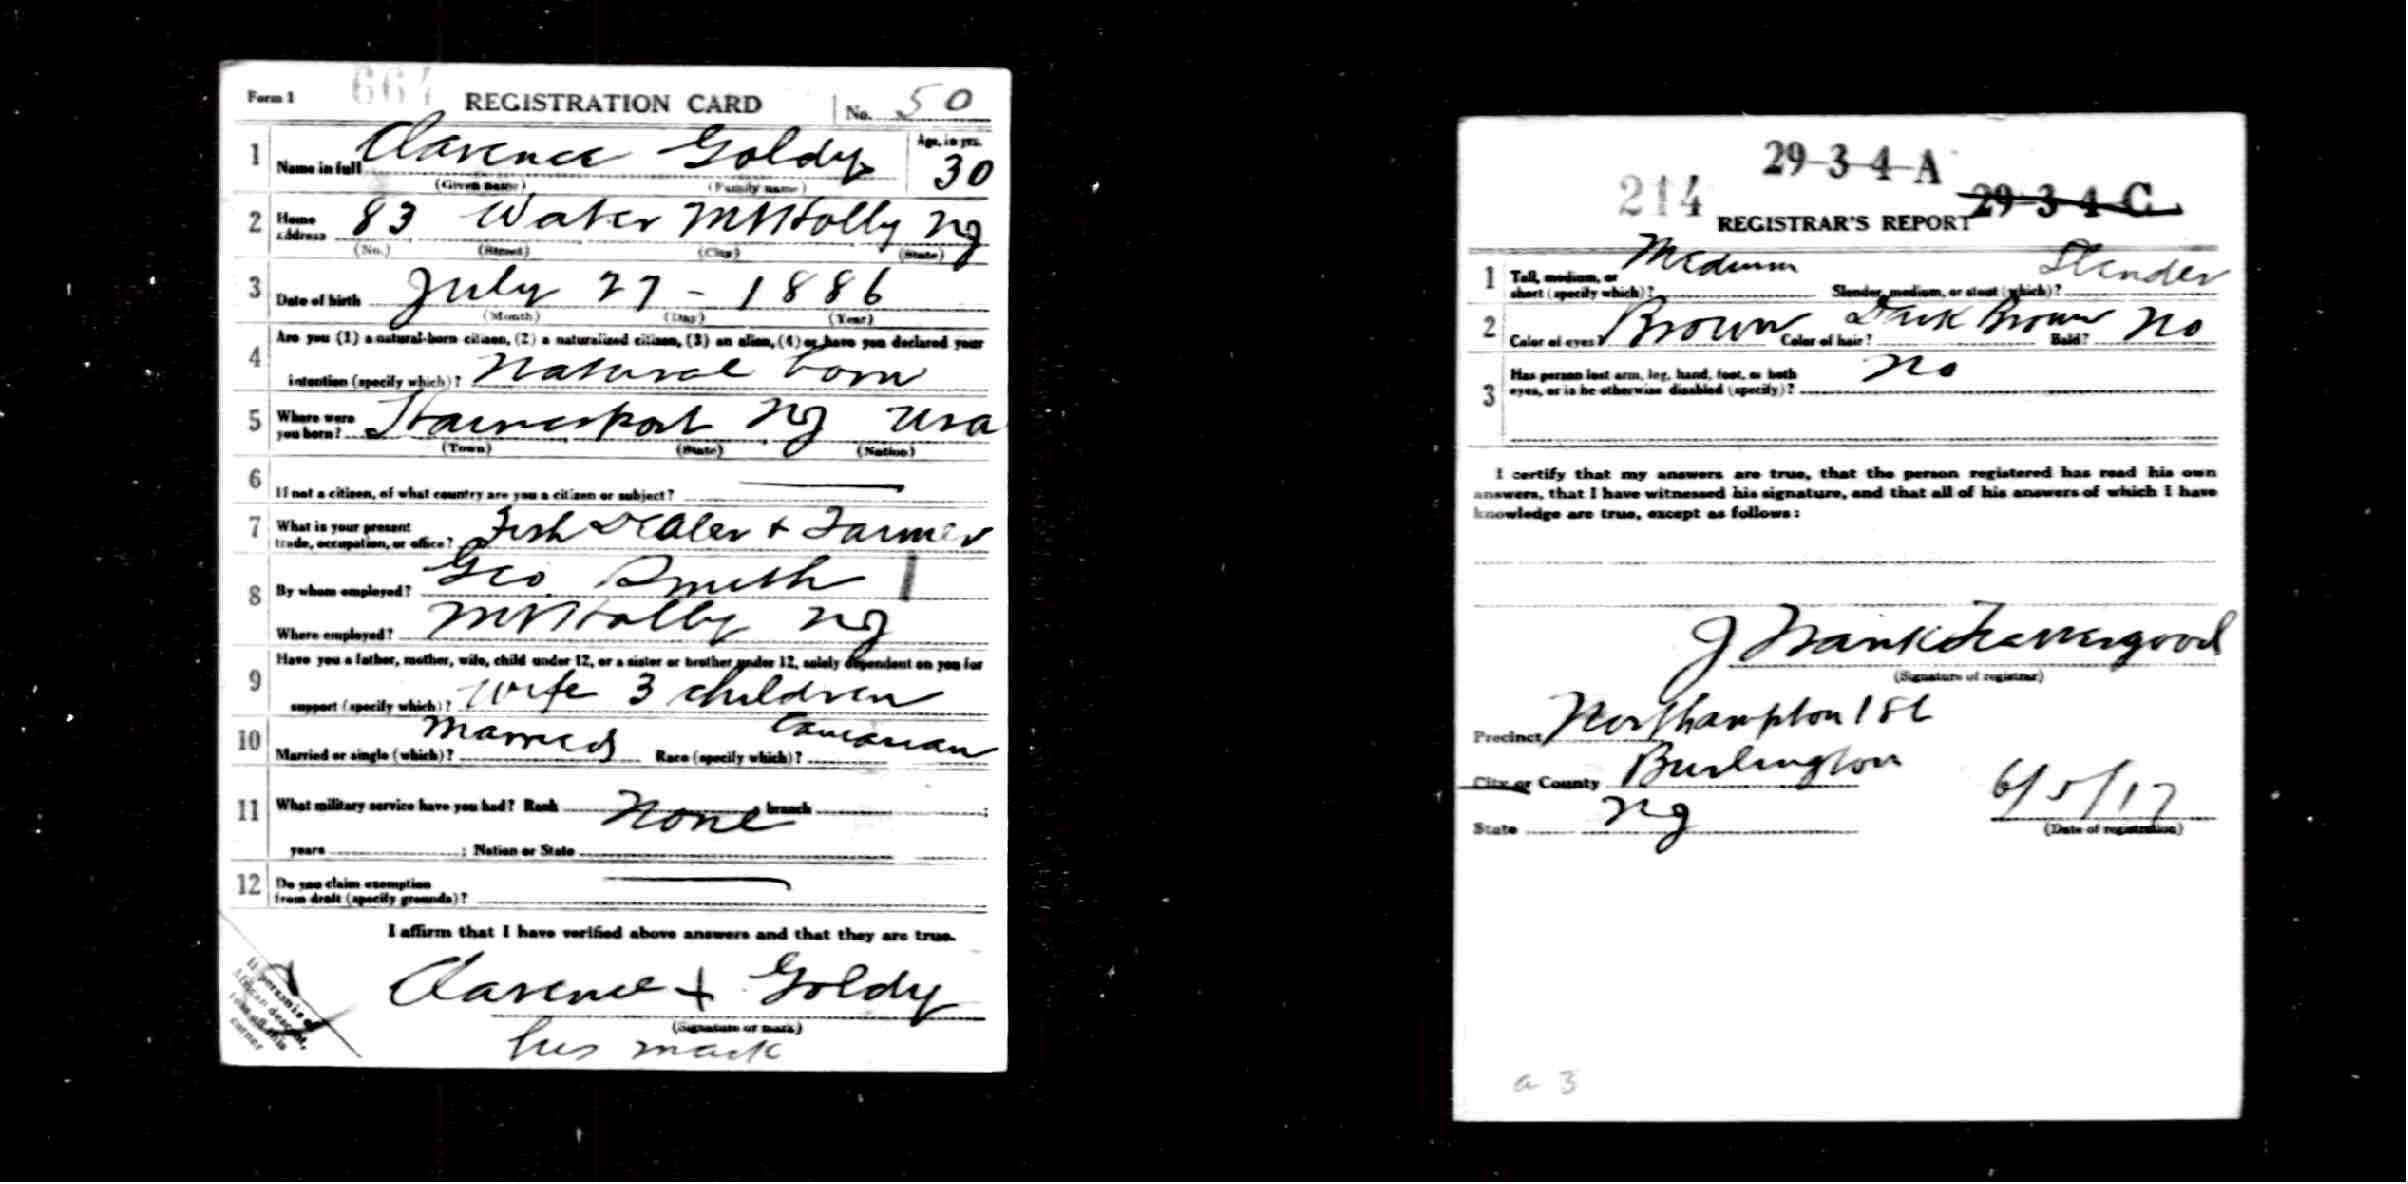 Form 1 664 REGISTRATION CARD No. 50
1 Name in full Clarence Goldy Age, in yrs. 30
(Given name) (Family name)
2 Home address 83 Water Mt Holly NJ
(No.) (Street) (City) (State)
3 Date of birth July 27 - 1886
(Month) (Day) (Year)
4 Are you (1) a natural-born citizen, (2) a naturalized citizen, (3) an alien, (4) or have you declared your
intention (specify which)? Natural born
5 Where were you born? Hainesport NJ USA
(Town) (State) (Nation)
6 If not a citizen, of what country are you a citizen or subject?
7 What is your present trade, occupation, or office? Fish Dealer + Farmer
8 By whom employed? Geo. Smith
Where employed? Mt Holly NJ
9 Have you a father, mother, wife, child under 12, or a sister or brother under 12, solely dependent on you for
support (specify which)? Wife 3 children
10 Married or single (which)? Married Race (specify which)? Caucasian
11 What military service have you had? Rank None branch ;
years ; Nation or State
12 Do you claim exemption
from draft (specify grounds)?
I affirm that I have verified above answers and that they are true.
Clarence + Goldy
(Signature or mark)
his mark
If person is of
African descent,
tear off this
corner
29-3-4-A
214 29-3-4-C
REGISTRAR'S REPORT
1 Tall, medium, or short (specify which)? Medium Slender, medium, or stout (which)? Slender
2 Color of eyes? Brown Color of hair? Dark Brown Bald? No
3 Has person lost arm, leg, hand, foot, or both
eyes, or is he otherwise disabled (specify)? No
I certify that my answers are true, that the person registered has read his own
answers, that I have witnessed his signature, and that all of his answers of which I have
knowledge are true, except as follows:
J Frank
(Signature of registrar)
Precinct Northampton 1st
City or County Burlington
State NJ 6/5/17
(Date of registration)
a 3